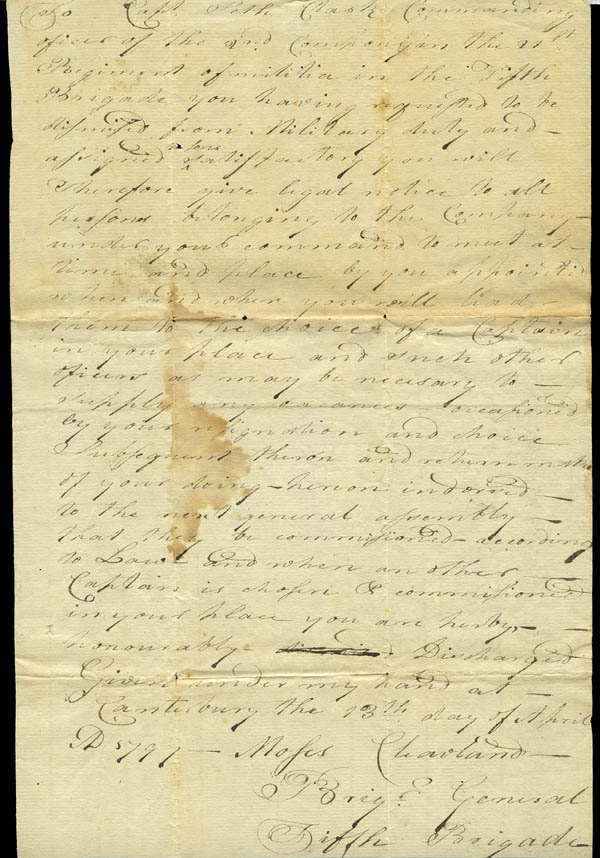 To Capt. Seth Clark Commanding
oficer of the 2nd Company in the 21st
Regiment of militia in the Fifth
Brigade you having requested to be
dismised from Military duty and
assigned reasons satisfactory you will
Therefore give legal notice to all
persons belonging to the Company
under your command to meet at
time and place by you appointed
when and where you will lead
them to the choice of a Captain
in your place and such other
oficers as may be necesary to
supply any vacances occasioned
by your resignation and choice
Subsequent theron and return make
of your doing hereon indorsed
to the next general assembly
that they be commisioned according
to Law and when another
Captain is chosen & commisioned
in your place you are herby
honourably Discharged
Given under my hand at
Canterbury the 13th day of April
AD 1797 Moses Cleavland
Brigr. General
Fifth Brigade